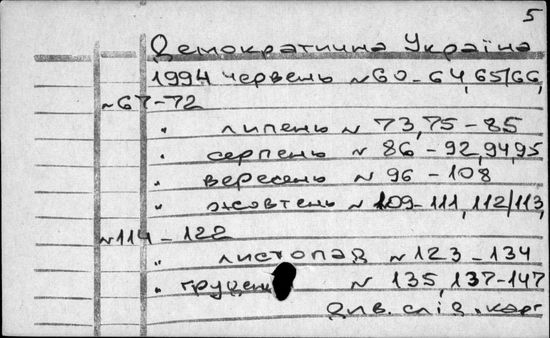 5
Демократична Україна
1994 червень №60-64,65/66,
№67-72
" липень № 73,75-85
" серпень № 86-92,94,95
" вересень № 96-108
" жовтень № 109-111,112/113,
№114-122
" листопад №123-134
" груцень № 135,137-147
Див. слід. карт